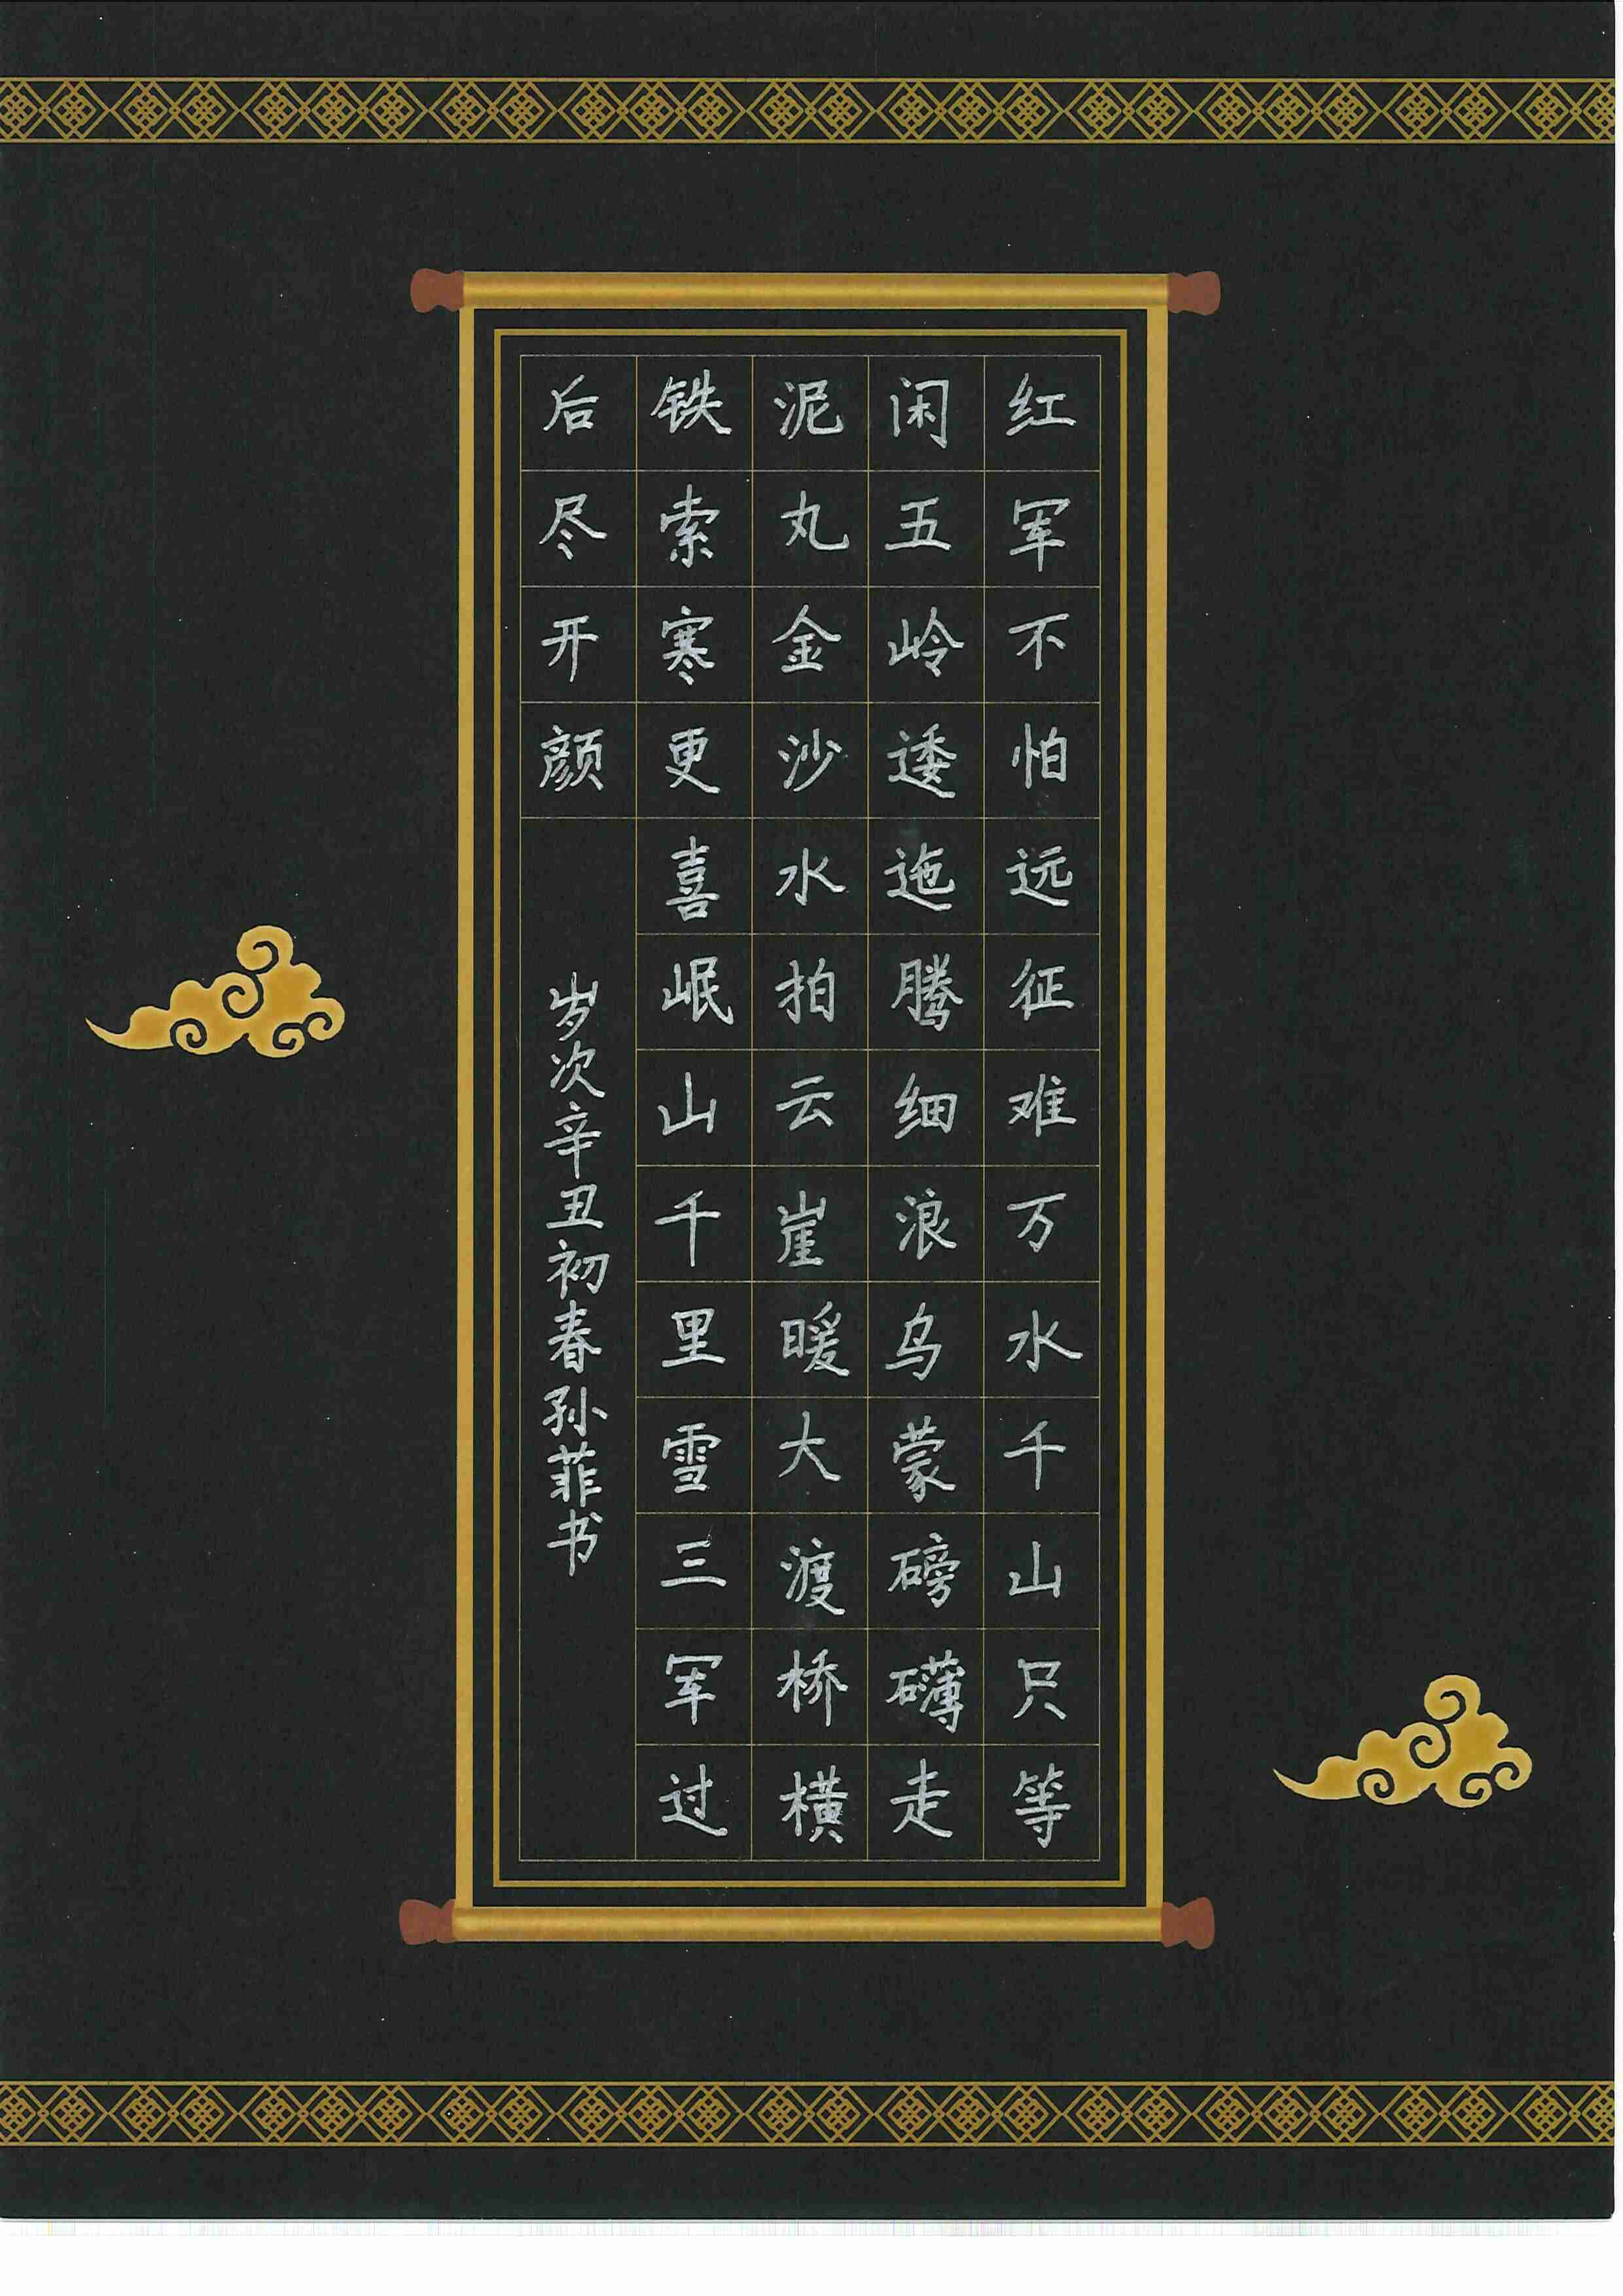 红军不怕远征难万水千山只等
闲五岭逶迤腾细浪乌蒙磅礴走
泥丸金沙水拍云崖暖大渡桥横
铁索寒更喜岷山千里雪三军过
后尽开颜
岁次辛丑初春孙菲书